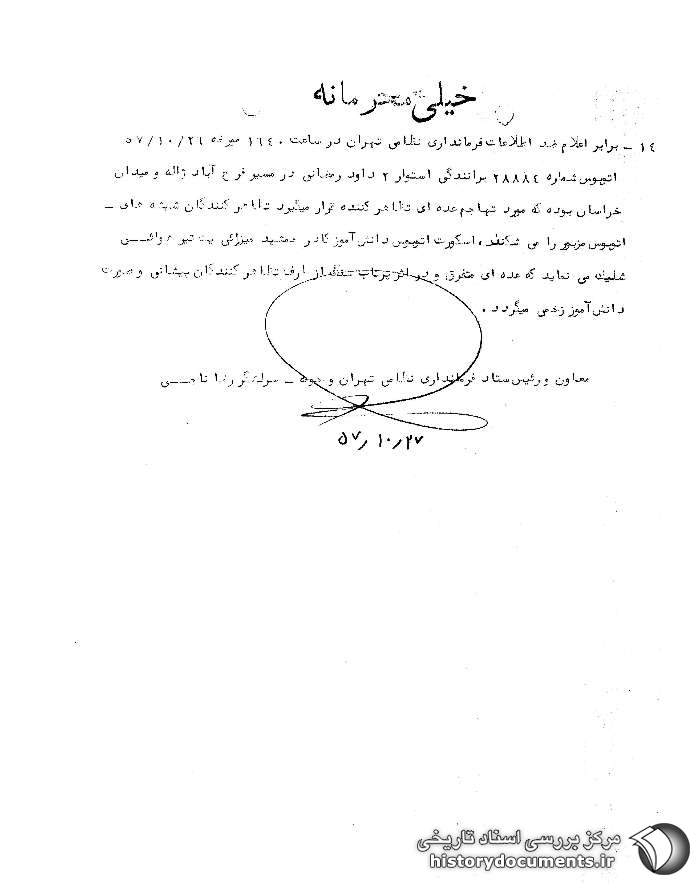 خیلی محرمانه
۱۴ – برابر اعلام ضد اطلاعات فرمانداری نظامی تهران در ساعت ۱۶۴۰ مورخه ۵۷/۱۰/۲۶
اتوبوس شماره ۲۸۸۸۴ برانندگی استوار ۲ داود رمضانی در مسیر فرح آباد ژاله و میدان
خراسان بوده که مورد تهاجم عده ای تظاهر کننده قرار میگیرد تظاهر کنندگان شیشه های –
اتوبوس مزبور را می شکنند، اسکورت اتوبوس دانش آموز کادر جمشید میرزائی یک تیر هوائی
شلیک می نماید که عده ای متفرق و در اثر پرتاب سنگ از طرف تظاهر کنندگان پیشانی و صورت
دانش آموز زخمی میگردد .
معاون و رئیس ستاد فرمانداری نظامی تهران و حومه – سرلشگر رضا ناجی
۵۷/۱۰/۲۷
مرکز بررسی اسناد تاریخی
historydocuments.ir